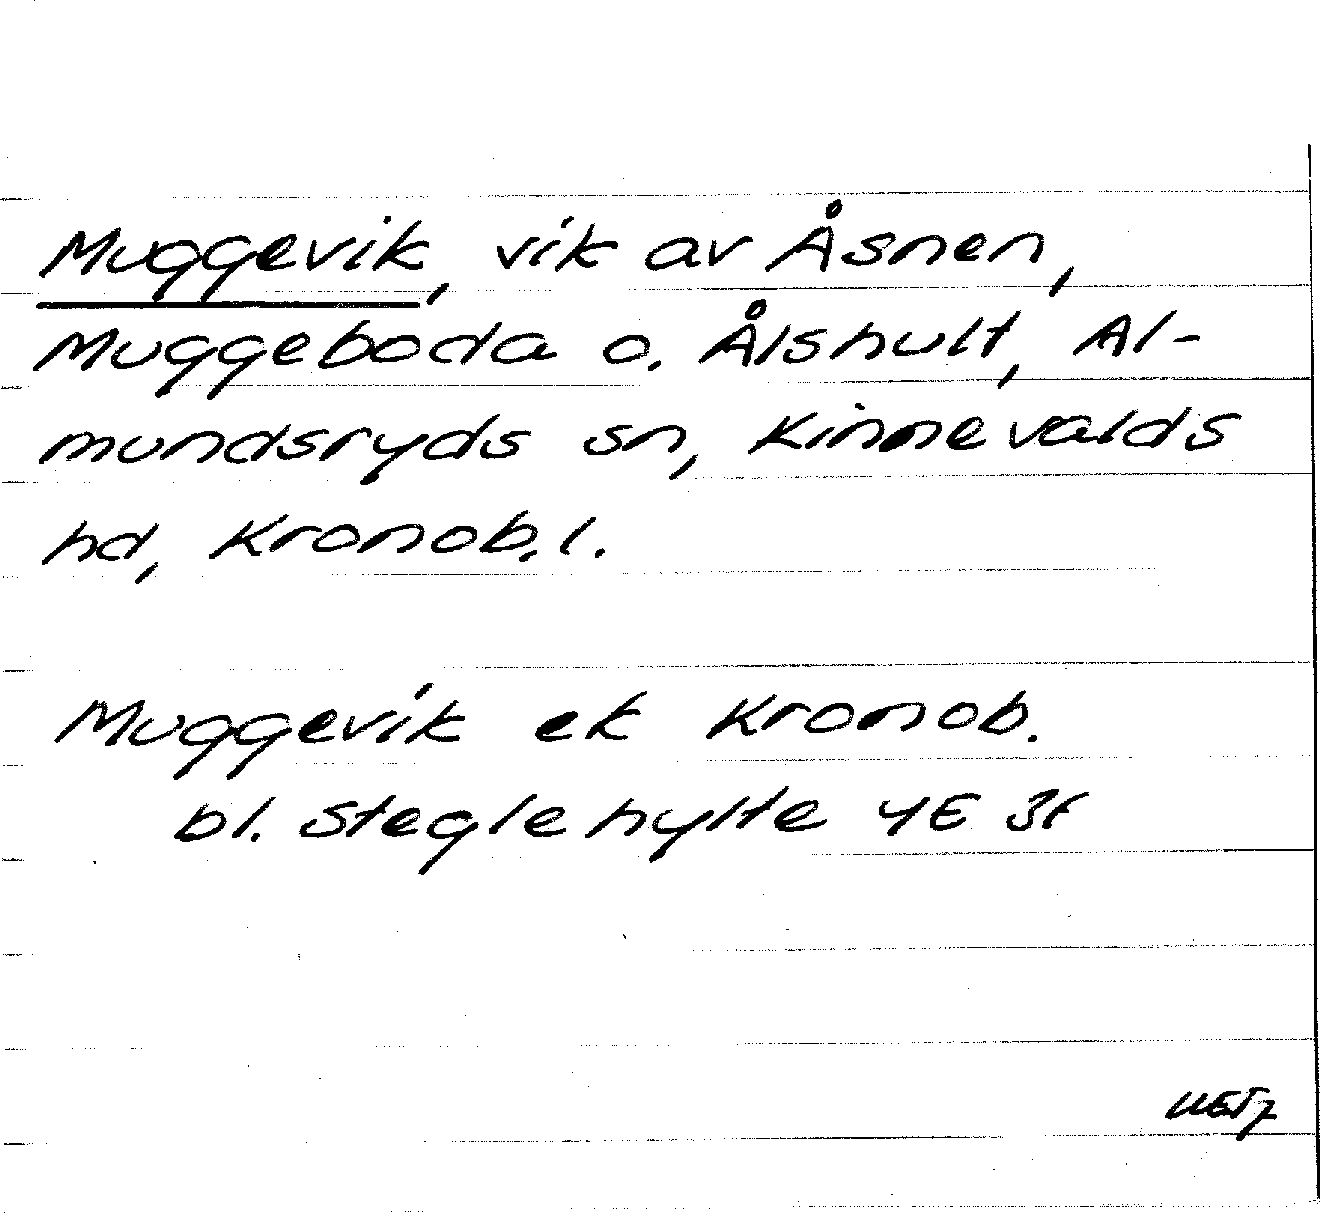 Muggevik, vik av Åsnen,
Muggeboda o. Ålshult, Al-
mundsryds sn, Kinnevalds
hd, Kronob. l.
Muggevik ek Kronob.
bl. Steglehylte 4E 3f